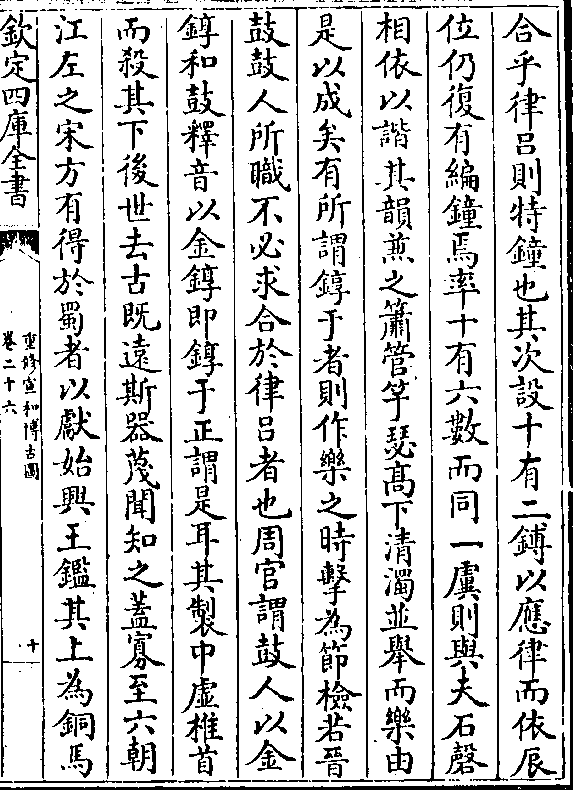 合乎律吕則特鐘也其次設十有二鎛以應律而依辰
位仍復有編鐘焉率十有六數而同一虡則與夫石磬
相依以諧其韻兼之簫管竽瑟髙下清濁並舉而樂由
是以成矣有所謂錞于者則作樂之時擊為節檢若晉
鼓鼓人所職不必求合於律吕者也周官謂鼓人以金
錞和鼓釋音以金錞即錞于正謂是耳其製中虚椎首
而殺其下後世去古既遠斯器蔑聞知之蓋寡至六朝
江左之宋方有得於蜀者以獻始興王鑑其上為銅馬
欽定四庫全書
重修宣和博古圖
卷二十六
十